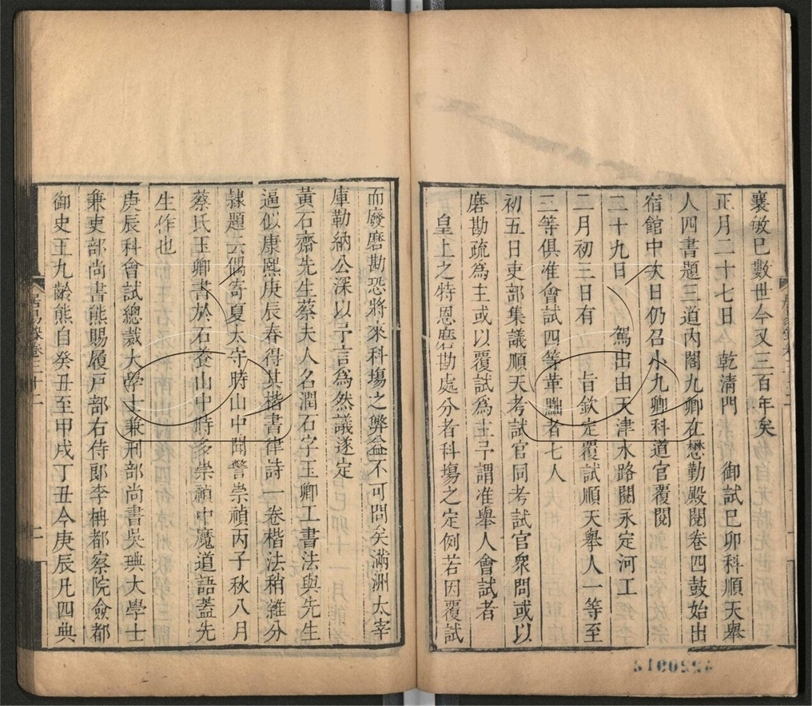 襄敏巳數世今又三百年矣
正月二十七日 乾清門 御試巳卯科順天舉
人四書題三道內閣九卿在懋勤殿閱卷四鼓始出
宿館中次日仍召小九卿科道官覆閱
二十九日 駕出由天津水路閱永定河工
二月初三日有 旨欽定覆試順天舉人一等至
三等俱准會試四等革黜者七人
初五日吏部集議順天考試官同考試官衆問或以
磨勘疏為主或以覆試為主予謂准舉人會試者
皇上之特恩磨勘處分者科塲之定例若因覆試
而廢磨勘恐將來科塲之弊益不可問矣滿洲太宰
庫勒納公深以予言為然議遂定
黃石齋先生蔡夫人名潤石字玉卿工書法與先生
逼似康熙庚辰春得其楷書律詩一卷楷法稍雜分
隸題云偶寄夏太守時山中聞警崇禎丙子秋八月
蔡氏玉卿書於石養山中時多崇禎中魔道語蓋先
生作也
庚辰科會試總裁大學士兼刑部尚書吳琠大學士
兼吏部尚書熊賜履戶部右侍郎李柟都察院僉都
御史王九齡熊自癸丑至甲戌丁丑今庚辰凡四典
居易錄卷三十二